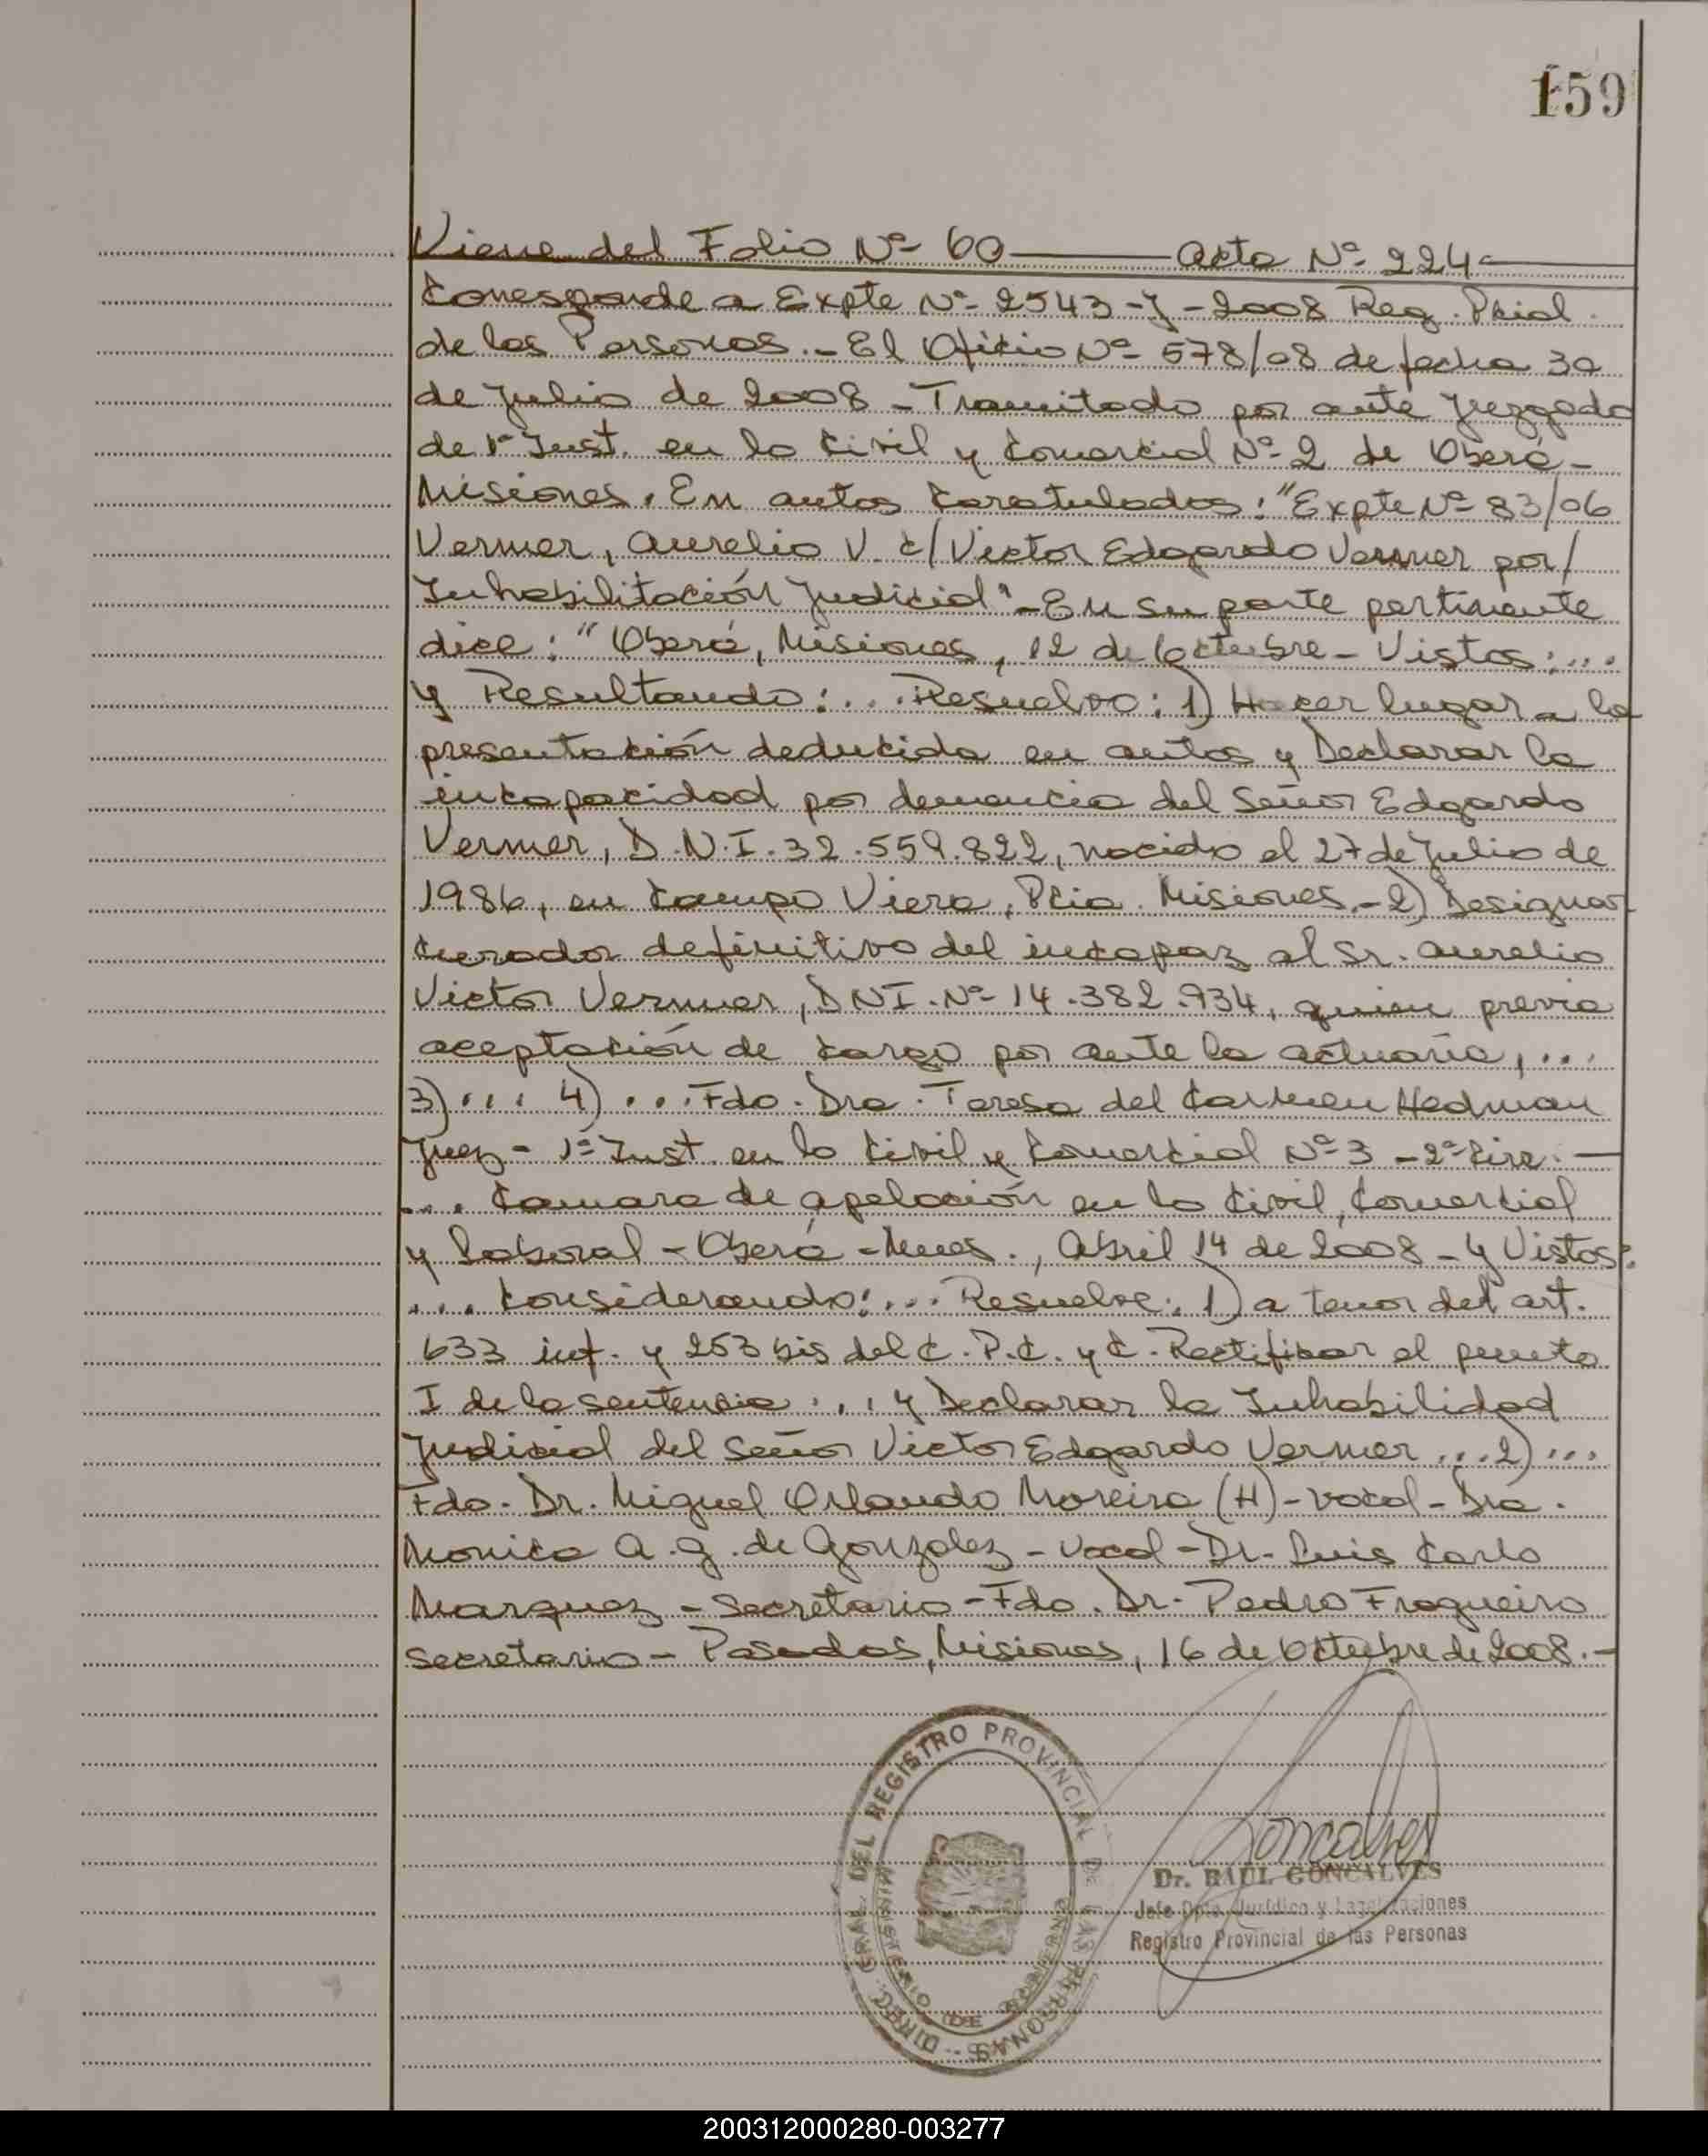 159
Viene del Folio Nº 60 — acta Nº 224 —
Corresponde a Expte Nº 2543-J-2008 Reg. Pcial.
de las Personas.- El Oficio Nº 578/08 de fecha 30
de Julio de 2008 - Tramitado por ante Juzgado
de 1ª Inst. en lo Civil y Comercial Nº 2 de Oberá -
Misiones. En autos Caratulados: "Expte Nº 83/06
Vermer, Aurelio V. c/ Victor Edgardo Vermer por/
Inhabilitación Judicial" - En su parte pertinente
dice: "Oberá, Misiones, 12 de Octubre - Vistos: ...
y Resultando: ... Resuelvo: 1) Hacer lugar a la
presentación deducida en autos y Declarar la
incapacidad por demencia del Señor Edgardo
Vermer, D.N.I. 32.559.822, nacido el 27 de Julio de
1986, en Campo Viera, Pcia. Misiones.- 2) Designar
curador definitivo del incapaz al Sr. Aurelio
Victor Vermer, DNI. Nº 14.382.934, quien previa
aceptación de cargo por ante la actuaria, ...
3) ... 4) ... Fdo. Dra. Teresa del Carmen Hedman
Juez - 1ª Inst. en lo Civil y Comercial Nº 3 - 2ª Circ. —
... Camara de apelación en lo Civil, Comercial
y Laboral - Oberá - Mnes., Abril 14 de 2008 - Y Vistos:
... Considerando: ... Resuelve: 1) a tenor del art.
633 inf. y 253 bis del C.P.C. y C. Rectificar el punto
I de la sentencia ... y Declarar la Inhabilidad
Judicial del Señor Victor Edgardo Vermer ... 2) ...
Fdo. Dr. Miguel Orlando Moreira (H) - vocal - Dra.
Monica A. G. de Gonzalez - Vocal - Dr. Luis Carlo
Marquez - Secretario - Fdo. Dr. Pedro Fragueiro
secretario - Posadas, Misiones, 16 de Octubre de 2008.-
DIREC. GRAL. DEL REGISTRO PROVINCIAL DE LAS PERSONAS
MINISTERIO DE GOBIERNO
Goncalves
Dr. RAUL GONCALVES
Jefe Dpto. Jurídico y Legalizaciones
Registro Provincial de las Personas
200312000280-003277